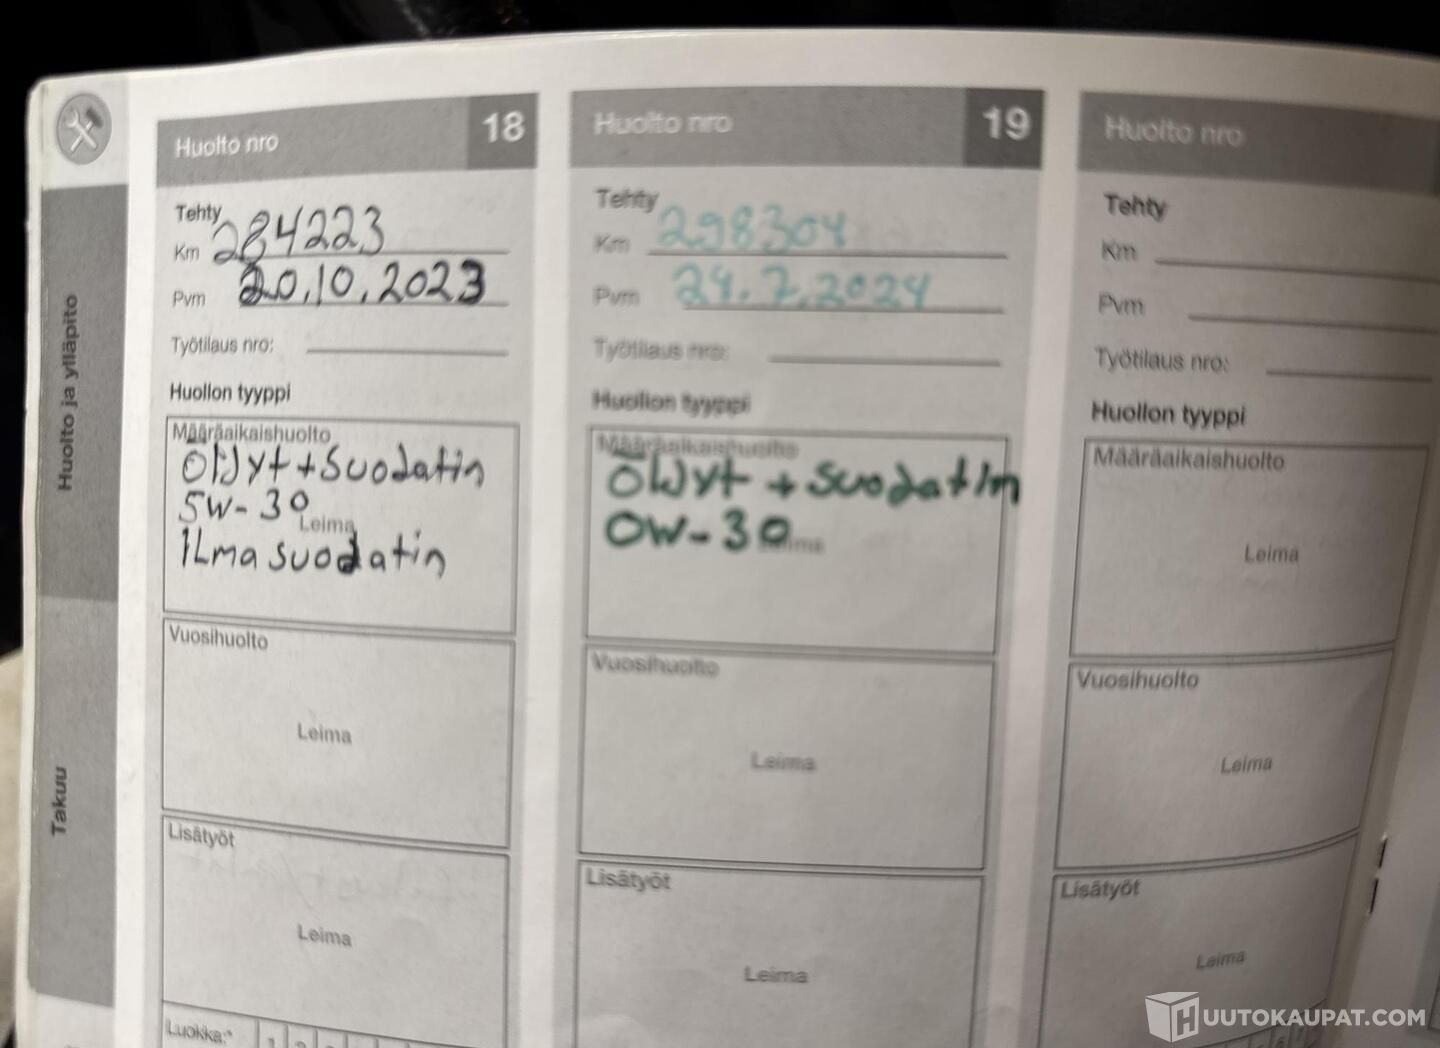 Huolto ja ylläpito
Takuu
Huolto nro 18
Tehty
Km 284223
Pvm 20.10.2023
Työtilaus nro:
Huollon tyyppi
Määräaikaishuolto
ÖlJyt + suodatin
5W-30
Leima
ilmasuodatin
Vuosihuolto
Leima
Lisätyöt
Leima
Luokka:*
Huolto nro 19
Tehty
Km 298304
Pvm 24.7.2024
Työtilaus nro:
Huollon tyyppi
Määräaikaishuolto
ÖlJyt + suodatin
0W-30
Leima
Vuosihuolto
Leima
Lisätyöt
Leima
Huolto nro
Tehty
Km
Pvm
Työtilaus nro:
Huollon tyyppi
Määräaikaishuolto
Leima
Vuosihuolto
Leima
Lisätyöt
Leima
HUUTOKAUPAT.COM